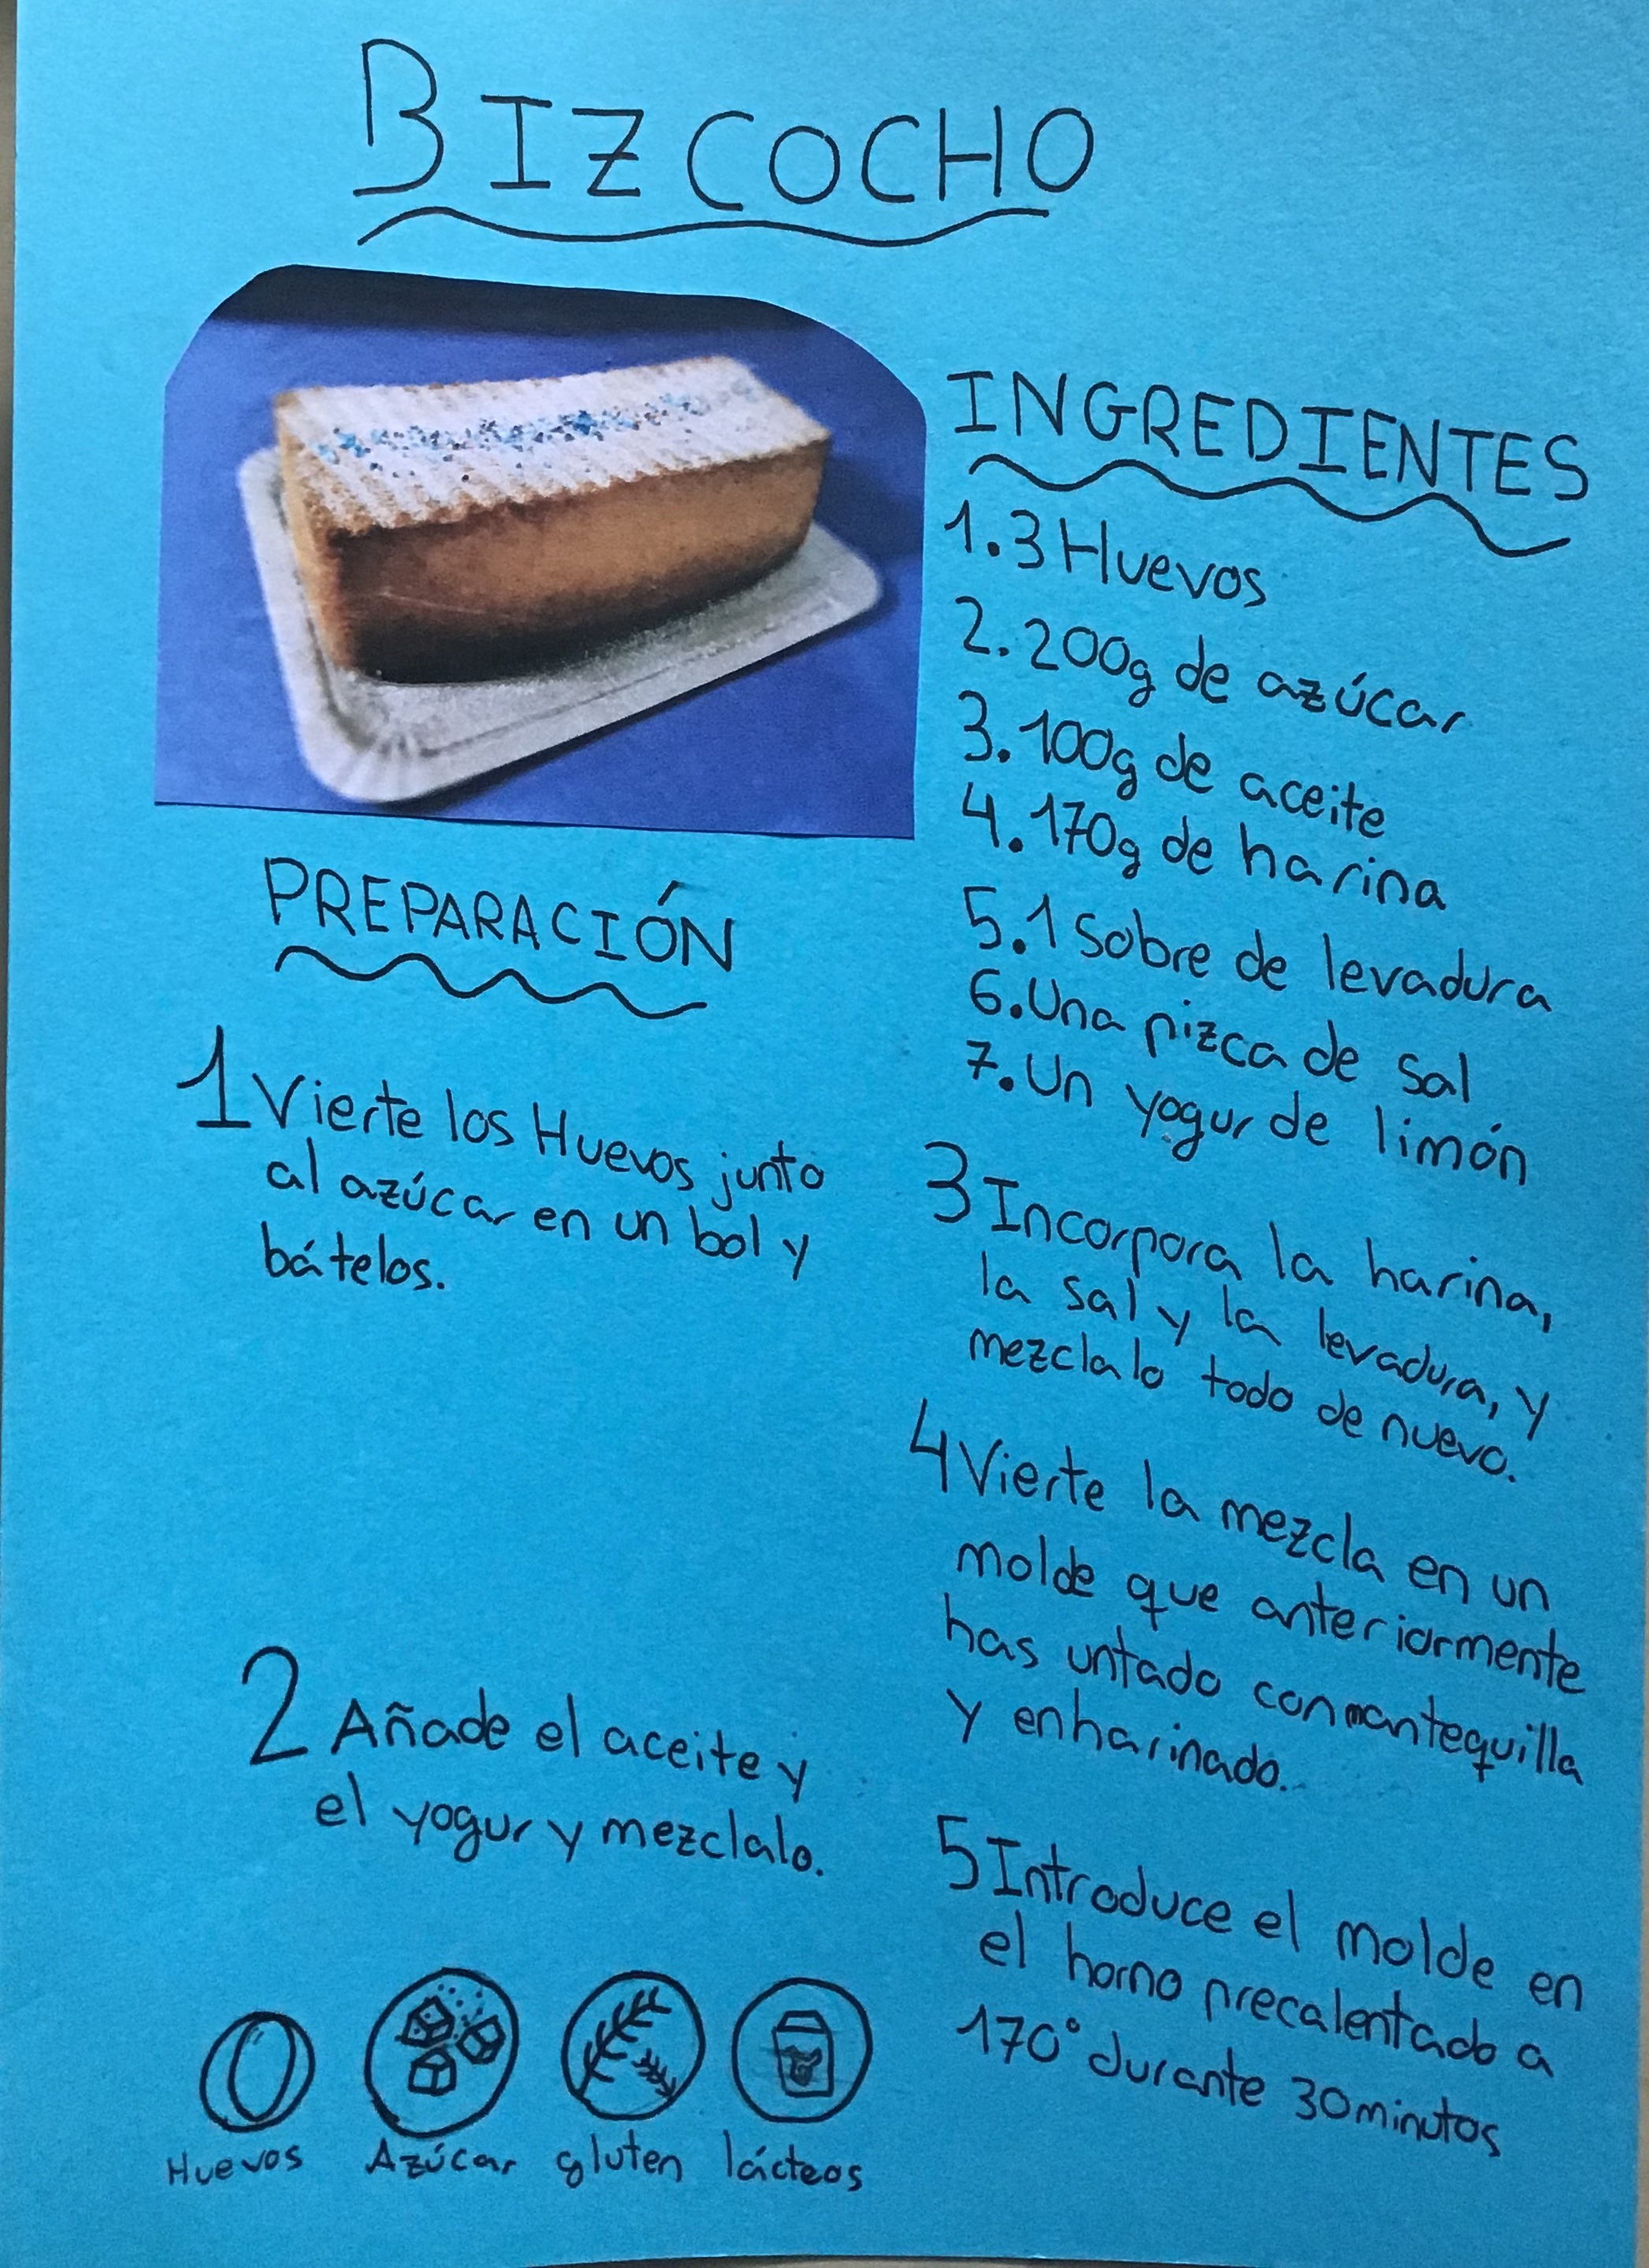 BIZCOCHO
INGREDIENTES
1.3 Huevos
2.200g de azúcar
3.100g de aceite
4.170g de harina
5.1 Sobre de levadura
6.Una pizca de sal
7.Un yogur de limón
PREPARACIÓN
1 Vierte los Huevos junto
al azúcar en un bol y
bátelos.
2 Añade el aceite y
el yogur y mezclalo.
3 Incorpora la harina,
la sal y la levadura, y
mezclalo todo de nuevo.
4 Vierte la mezcla en un
molde que anteriormente
has untado con mantequilla
y enharinado.
5 Introduce el molde en
el horno precalentado a
170° durante 30 minutos
Huevos Azúcar gluten lácteos